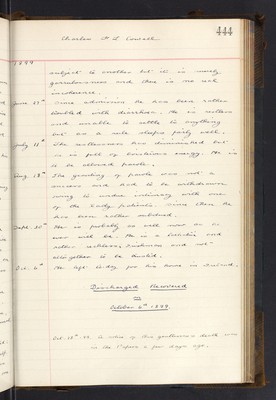 444
Charles
1899
subject to another but it is merely
garrulousness and there is no real
incoherence.
June 25th Since admission he has been rather
troubled with diarrhoea. He is restless
and unable to settle to anything
but as a rule sleeps fairly well.
July 11th The restlessness has diminished but
he is full of boisterous energy. He is
to be allowed parole.
Aug. 12th The granting of parole was not a
success and had to be withdrawn
owing to undue intimacy with some
of the lady patients. Since then he
has been rather subdued.
Sept. 30th He is probably as well now as he
ever will be. He is a
rather reckless, and not
altogether to be trusted.
Oct. 6th He left to-day for his home in Ireland.
Discharged Recovered
October 6th 1899.
Oct. 28th 22. A notice of this gentleman's death was
in the a few days ago.